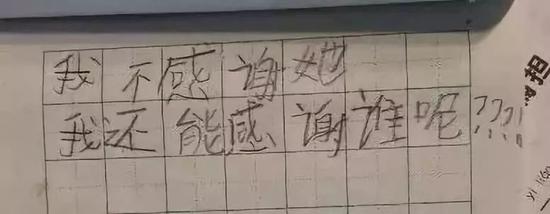 我不感谢她
我还能感谢谁呢????
担